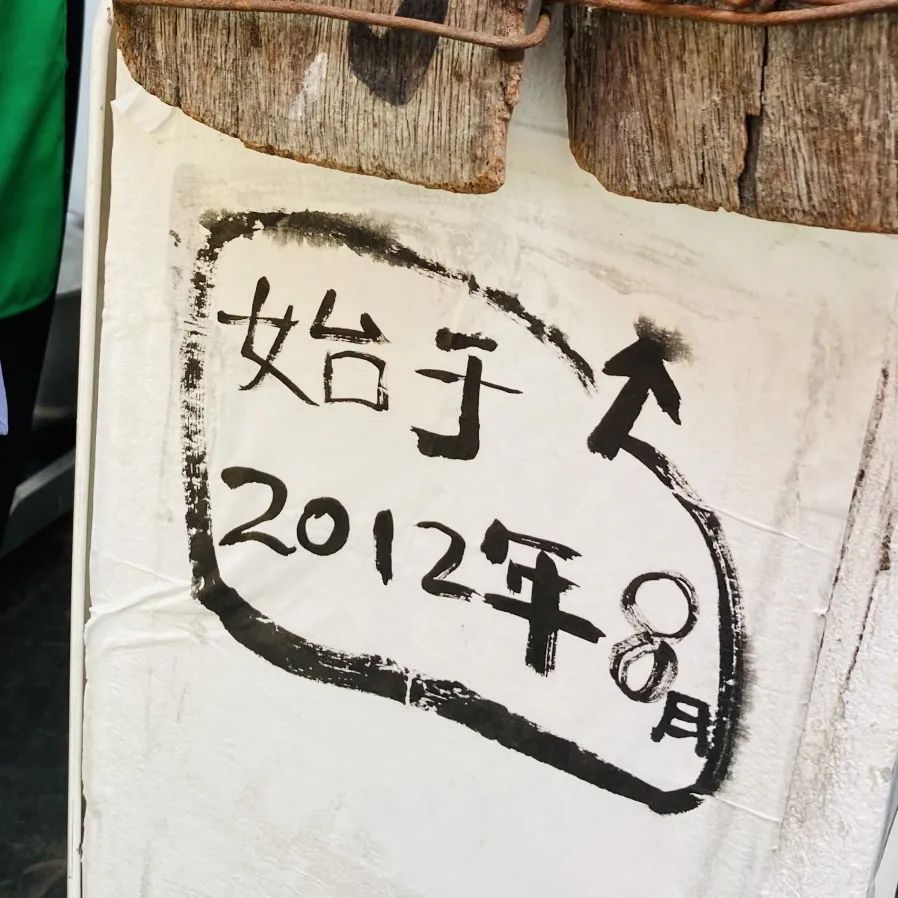 始于
2012年8月